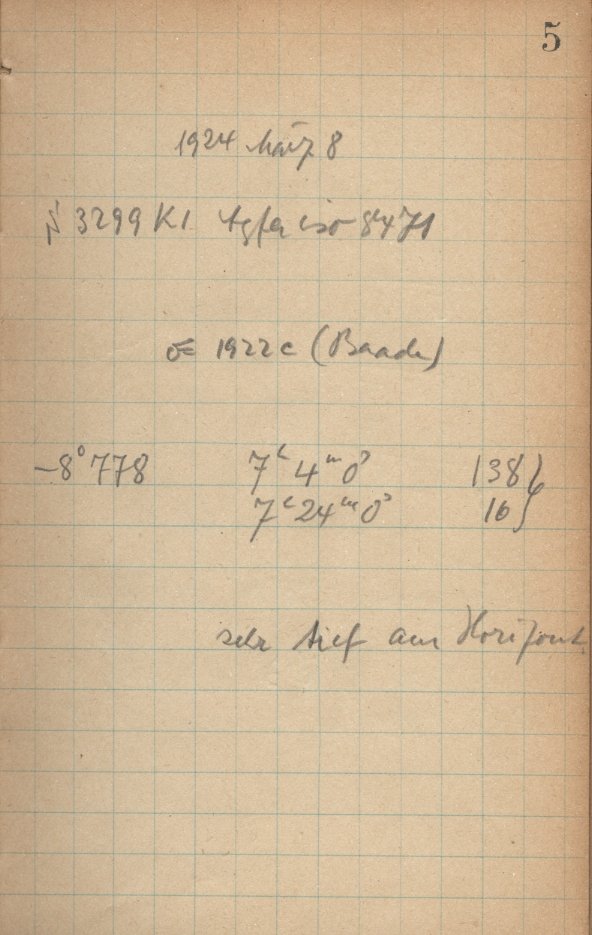 5
1924 März 8
3299 KI Agfa iso 8471
1922 c (Baade)
-8° 778 7h 4m 0s 138
7h 24m 0s 16
sehr tief am Horizont